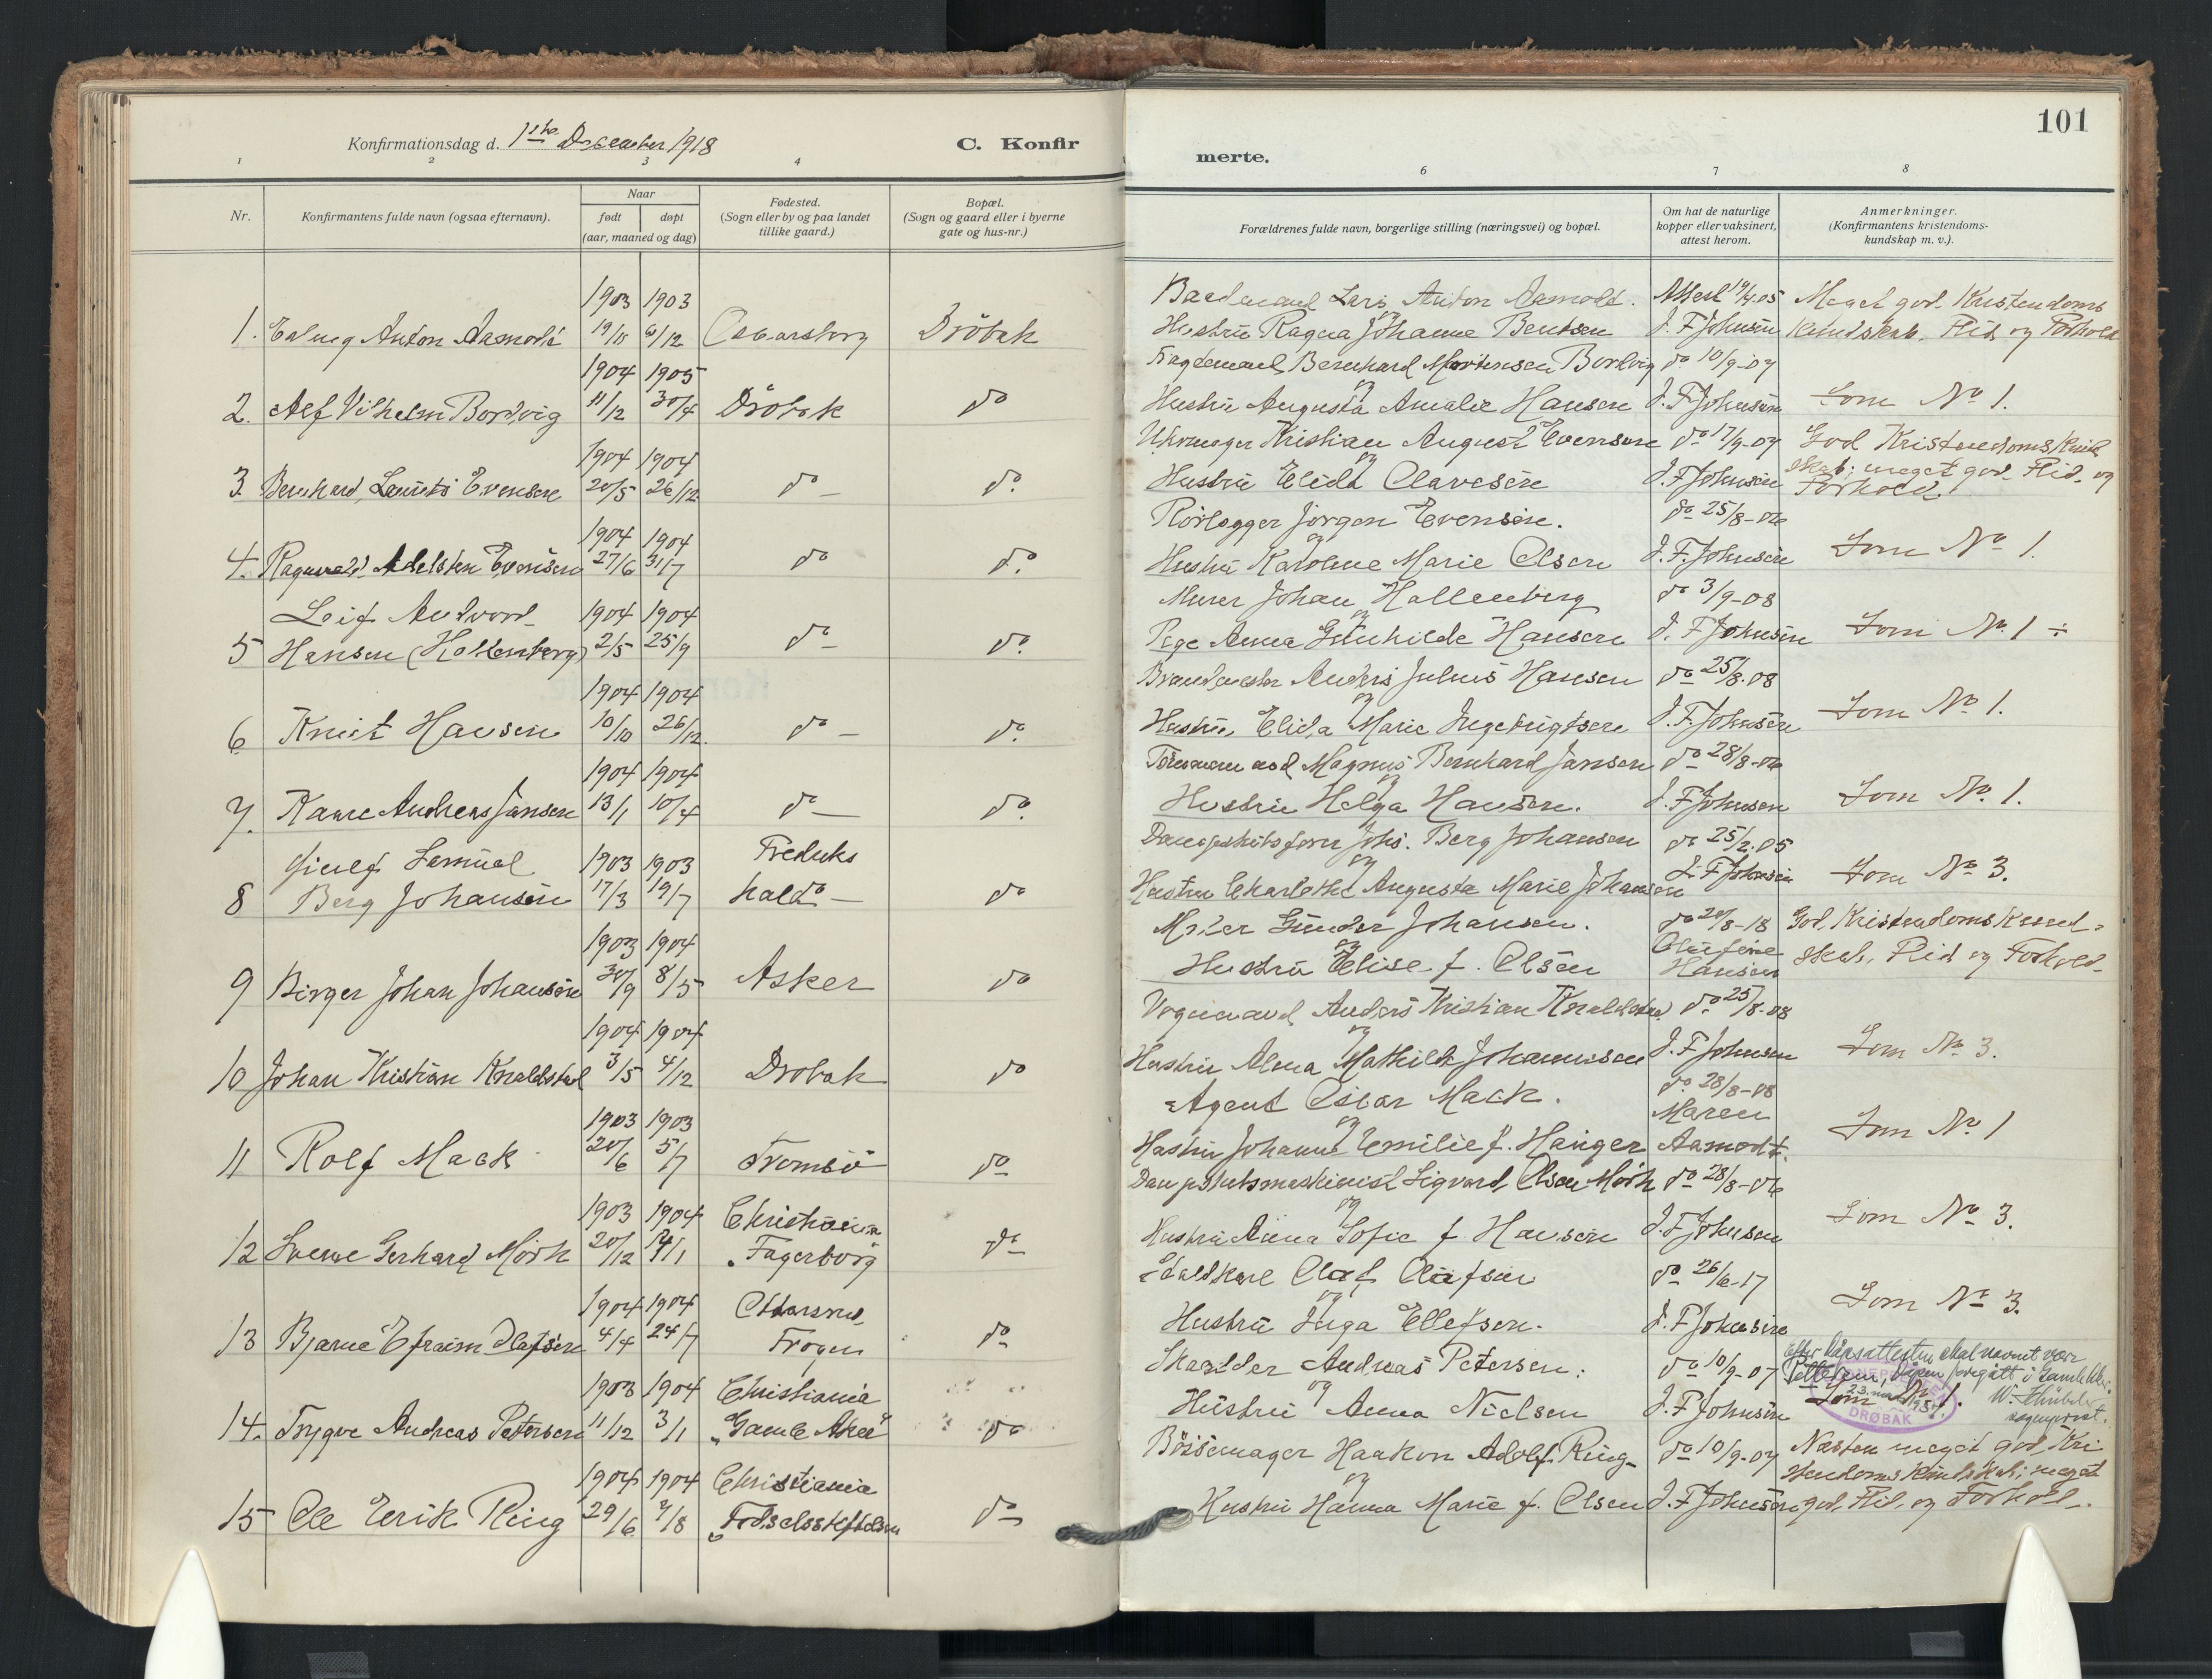 101
Konfirmationsdag d. 1ste December 1918
C. Konfir
merte.
1 2 3 4 6 7 8
Nr.
Konfirmantens fulde navn (ogsaa efternavn).
Naar
født døpt
(aar, maaned og dag)
Fødested.
(Sogn eller by og paa landet
tillike gaard.)
Bopæl.
(Sogn og gaard eller i byerne
gate og hus-nr.)
Forældrenes fulde navn, borgerlige stilling (næringsvei) og bopæl.
Om hat de naturlige
kopper eller vaksinert,
attest herom.
Anmerkninger.
(Konfirmantens kristendoms-
kundskap m. v.).
1903 1903
1. Anton 6/12 Oscarsborg Drøbak
Baadmand Lars Anton Aamodt. Attest 19/4.05 Meget god Kristendoms
og
Hustru Ragna Johanne Bentsen J. F. Johnsen Kundskab, Flid og Forhold
1904 1905
2. Alf Vilhelm Bordvig 11/12 30/4 Drøbak do
Bernhard Mortensen Bordvig do 10/9-07
og
Hustru Augusta Amalie Hansen J. F. Johnsen Som No 1.
1904 1904
3. Bernhard Evensen 20/5 26/12 do do
Uhrmager Kristian August Evensen do 17/9-07 God Kristendomskund
og
Hustru Elida Olavesen J. F. Johnsen skab; meget god Flid og
Forhold.
1904 1904
4. Ragnvald Adelsten Evensen 27/6 31/7 do do
Rørlegger Jørgen Evensen. do 25/8-06
og
Hustru Karoline Marie Olsen J. F. Johnsen Som No 1.
Leif 1904 1904
5 Hansen (Hallenberg) 2/5 25/9 do do
Murer Johan Hallenberg do 3/9-08
og
Pige Anna Gunhilde Hansen J. F. Johnsen Som No. 1 ÷
1904 1904
6. Knut Hansen 10/10 26/12. do do
Brandmester Anders Julius Hansen do 25/8.08
og
Hustru Elida Marie Ingebrigtsen J. F. Johnsen Som No 1.
1904 1904
7. Kaare Andreas Jansen 13/1 10/4 do do
Magnus Bernhard Jansen do 28/8-06
og
Hustru Helga Hansen. J. F. Johnsen Som No. 1.
Samuel 1903 1903 Fredriks
8 Berg Johansen 17/3 19/7 hald do
Johs. Berg Johansen do 25/2.05
og
Hustru Charlotte Augusta Marie Johansen J. F. Johnsen Som No 3.
1903 1904
9 Birger Johan Johansen 30/9 8/5 Asker do
Gunder Johansen. do 28/8-18 God Kristendoms Kund-
og Olufine
Hustru Elise f. Olsen Hansen skab, Flid og Forhold
1904 1904
10 Johan Kristian Knaldstad 3/5 4/12 Drøbak do
Vognmand Anders Kristian Knaldstad do 25/8-08
og
Hustru Alma Mathilde Johannesen J. F. Johnsen Som No 3.
1903 1903
11 Rolf Mack 20/6 5/7 Tromsø do
Agent Oscar Mack. do 28/8-08
og Maren
Hustru Johanne Emilie f. Hanger Aamodt. Som No 1
1903 1904 Christiania
12 Sverre Gerhard Mørk 20/12 „Fagerborg do
Sigvard Olsen Mørk do 28/8-06
og
Hustru Anna Sofie f. Hansen J. F. Johnsen Som No 3.
1904 1904
13 Bjarne Efraim Olafsen 4/4 24/7 Frogn do
Olaf Olafsen do 26/6-17
og
Hustru Inga Ellefsen. J. F. Johnsen Som No 3.
1903 1904 Christiania
14. Trygve Andreas Petersen 11/12 3/1 „Gamle Aker" do
Skrædder Andreas Petersen. do 10/9-07 Efter dåpsattesten skal navnet være
Pettersen, dåpen foregått i Gamle Aker.
og
Hustru Anna Nielsen J. F. Johnsen Som No 1.
23. DRØBAK
sogneprest.
1904 1904 Christiania
15 Ole Erik Ring 29/6 7/8 Fødselsstiftelsen do
Bøssemager Haakon Adolf Ring do 10/9-07 Næsten meget god Kri
og
stendoms Kundskab; meget
Hustru Hanna Marie f. Olsen J. F. Johnsen god Flid og Forhold.